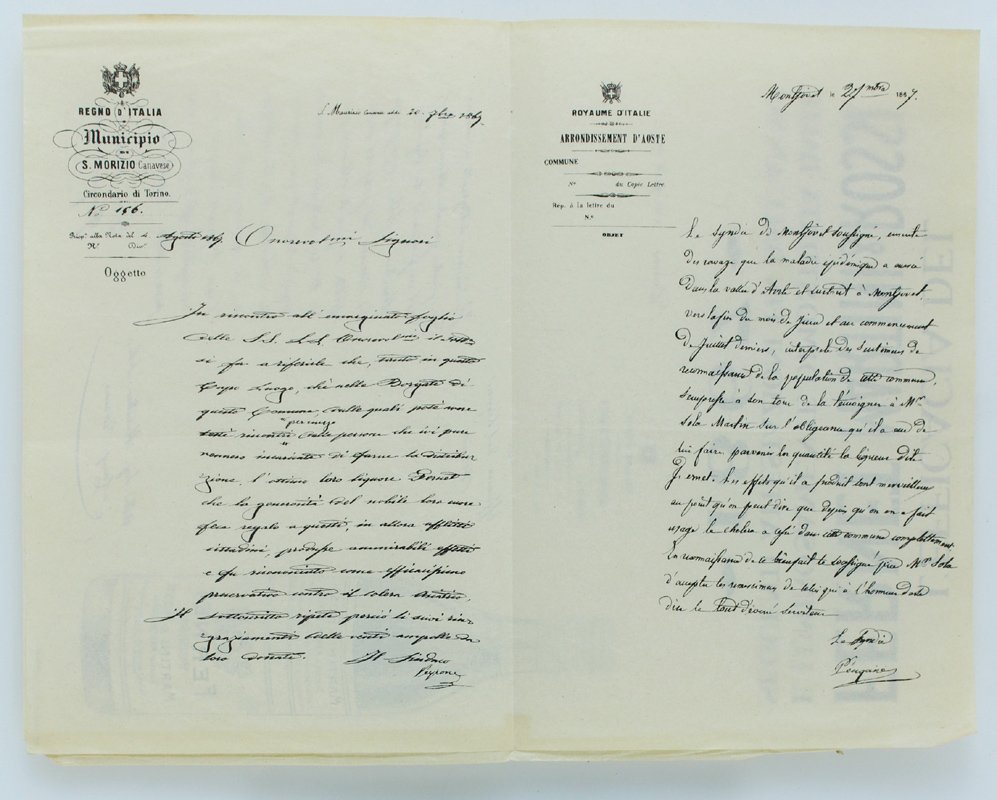 REGNO D'ITALIA
Municipio
DI
S. MORIZIO Canavese
Circondario di Torino.
N.º 156.
Risp. alla Nota del 4. Agosto 1867
N.º Div.
Oggetto
S. Maurizio Canavese addì 20. 7bre 1867
Onorevolmi Signori
In riscontro all'
foglio
delle SS. LL. Onorevolme il
si fa a riferire che, tanto in questo
Capo Luogo, che nelle Borgate di
questo Comune, nelle quali
per mezzo
persone che ivi pure
vennero incaricate di farne la distribu
zione, l' loro liquore Fernet
che la generosità del nobile loro cuore
fece regalo a questi, in allora afflitti
cittadini, produsse ammirabili effetti
e fu riconosciuto come efficacissimo
preservativo contro il colera
Il sottoscritto ripete perciò li suoi rin
graziamenti delle venti ampolle da
loro donate.
Il Sindaco
Peyrone
ROYAUME D'ITALIE
ARRONDISSEMENT D'AOSTE
COMMUNE
N.º du Copie Lettre.
Rép. à la lettre du
N.º
OBJET
Montjovet le 27 1867.
Le Syndic de Montjovet soussigné, ensuite
des ravage que la maladie épidémique a
dans la vallée d'Aoste et surtout à Montjovet
vers la fin du mois de Juin et au commencement
de Juillet derniers, interprète des sentimens de
reconnaissance de la population de cette commune,
s'empresse à son tour de la témoigner à Mr
Sola Martin sur l'obligeance qu'il a eu de
lui faire parvenir en quantité la liqueur dite
Fernet. Les effets qu'il a produit sont merveilleux
au point qu'on peut dire que depuis qu'on en a fait
usage le cholera a cessé dans cette commune complettement
En reconnaissance de ce bienfait le soussigné prie Mr Sola
d'accepter les remercimens de celui qui à l'honneur de se
dire le Tout dévoué serviteur
Le Syndic